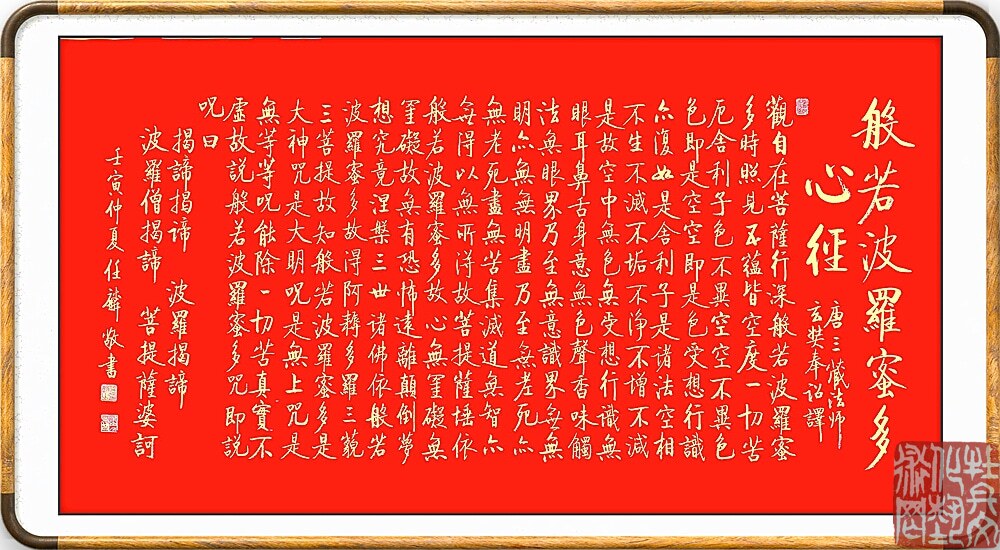 般若波羅蜜多
心經
唐三藏法师
玄奘奉詔譯
觀自在菩薩行深般若波羅蜜
多時照見五蘊皆空度一切苦
厄舍利子色不異空空不異色
色即是空空即是色受想行識
亦復如是舍利子是诸法空相
不生不滅不垢不淨不增不減
是故空中無色無受想行識無
眼耳鼻舌身意無色聲香味觸
法無眼界乃至無意識界無無
明亦無無明盡乃至無老死亦
無老死盡無苦集滅道無智亦
無得以無所得故菩提薩埵依
般若波羅蜜多故心無罣礙無
罣礙故無有恐怖遠離顛倒夢
想究竟涅槃三世诸佛依般若
波羅蜜多故得阿耨多羅三藐
三菩提故知般若波羅蜜多是
大神咒是大明呪是無上咒是
無等等呪能除一切苦真實不
虛故説般若波羅蜜多咒即説
呪曰
揭諦揭諦 波羅揭諦
波羅僧揭諦 菩提薩婆訶
壬寅仲夏任麟敬書